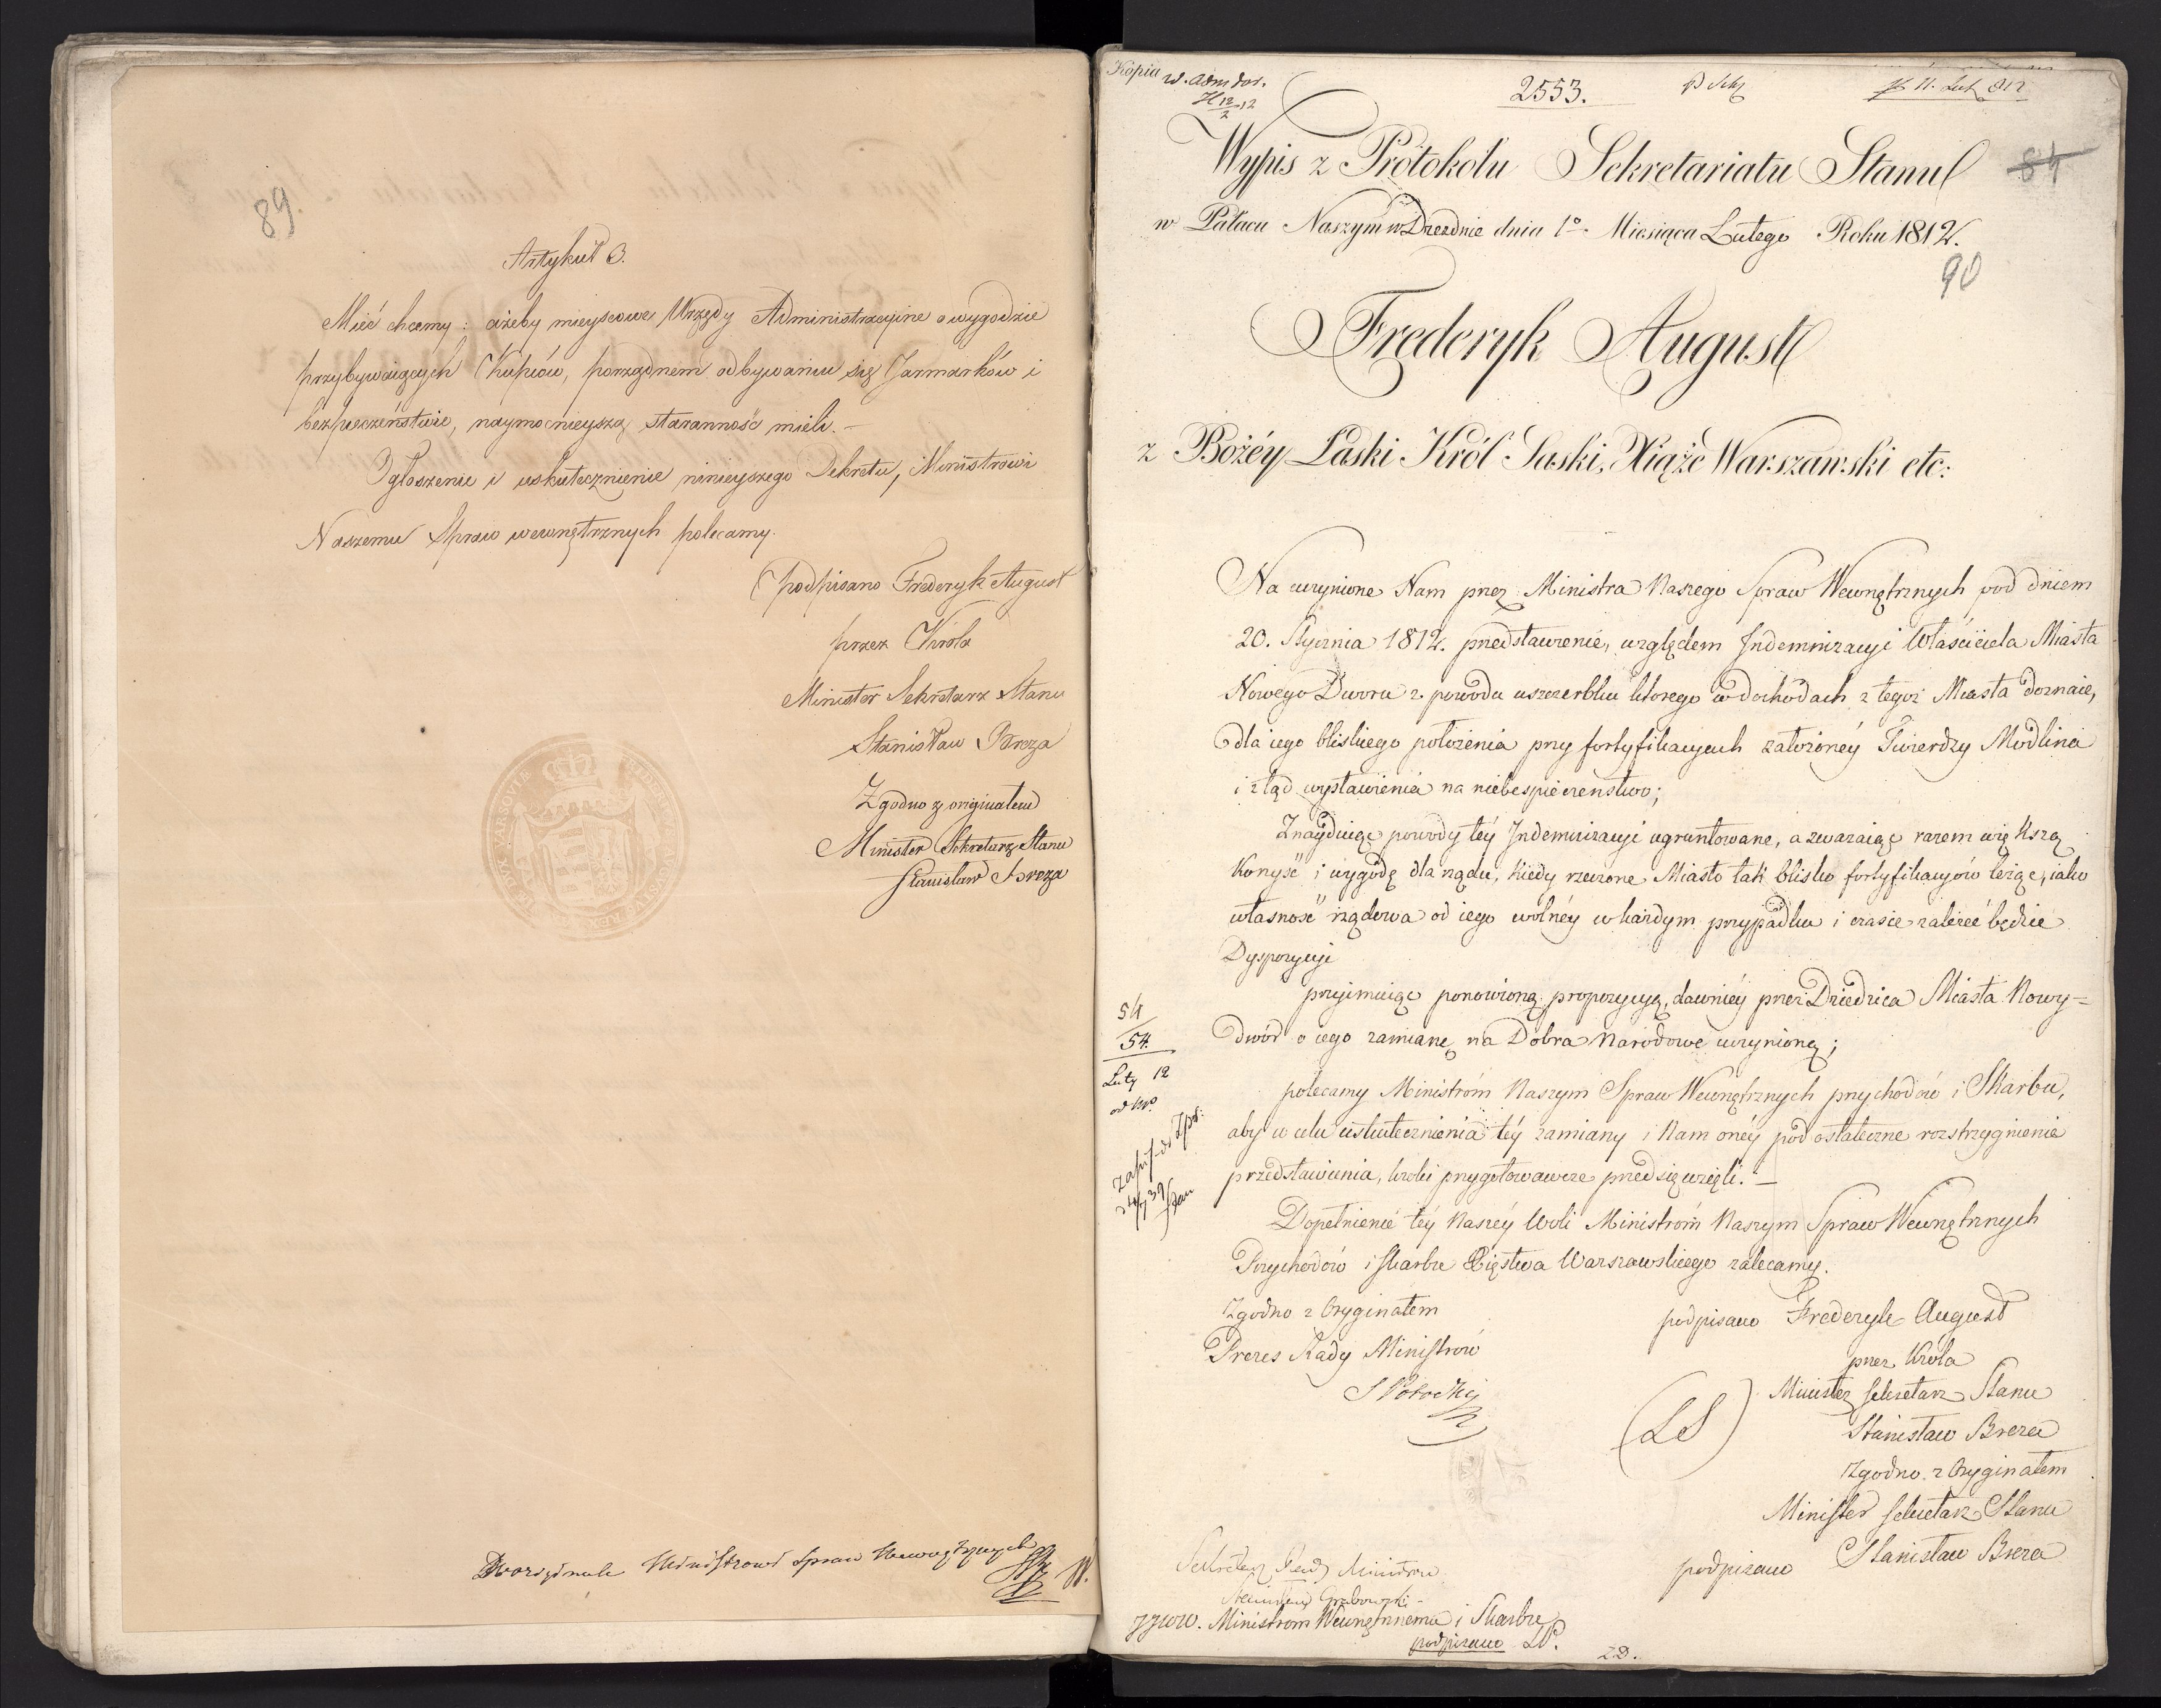 89
Artykuł 6.
Mieć chcemy: ażeby mieyscowe Urzędy Administracyine o wygodzie
przybywaiących Kupców, porządnem odbywaniu się Jarmarków i
bezpieczeństwie, naymocnieyszą staranność mieli. —
Ogłoszenie i uskutecznienie ninieyszego Dekretu, Ministrowi
Naszemu Spraw wewnętrznych polecamy.
podpisano Frederyk August
przez Króla
Minister Sekretarz Stanu
Stanisław Breza
Zgodno z originałem
Minister Sekretarz Stanu
Stanisław Breza
Ministrowi Spraw Wewnętrznych
Kopia
2553.
11. Lut. 812
Wypis z Protokołu Sekretariatu Stanu
84
w Pałacu Naszym w Dreznie dnia 1o. Miesiąca Lutego Roku 1812.
90
Frederyk August
z Bożéy Łaski Król Saski, Xiąże Warszawski etc:
Na uczynione Nam przez Ministra Naszego Spraw Wewnętrznych pod dniem
20. Stycznia 1812. przedstawienie, względem Indemnizacyi Właściciela Miasta
Nowego Dworu z powodu uszczerbku którego w dochodach z tegoż Miasta doznaie,
dla iego bliskiego położenia przy fortyfikacyach założonéy Twierdzy Modlina
i ztąd wystawienia na niebespieczeństwo;
Znayduiąc powody téy Indemnizacyi ugruntowane, a zważaiąc razem większą
Korzyść i wygodę dla rządu, kiedy rzeczone Miasto tak blisko fortyfikacyów leżące, iako
własność rządowa od iego wolnéy w każdym przypadku i czasie zależeć będzie
Dyspozycyi
przyimuiąc ponowioną propozycyą, dawniéy przez Dziedzica Miasta Nowy=
dwór o iego zamianę na Dobra Narodowe uczynioną;
54
54.
Luty 12
polecamy Ministróm Naszym Spraw Wewnętrznych przychodów i Skarbu,
aby w celu uskutecznienia téy zamiany i Nam onéy pod ostateczne rozstrzygnienie
przedstawienia, kroki przygotowawcze przedsięwzięli. —
Dopełnienie téy Naszéy Woli Ministróm Naszym Spraw Wewnętrznych
Przychodów i Skarbu Xięstwa Warszawskiego zalecamy.
Zgodno z Oryginałem
Prezes Rady Ministrów
S Potocki
podpisano Frederyk August
przez Króla
Minister Sekretarz Stanu
(LS)
Stanisław Breza
Zgodno z Oryginałem
Minister Sekretarz Stanu
podpisano Stanisław Breza
Sekretarz Rady Ministrów
Grabowski
Ministrom Wewnętrznemu i Skarbu
podpisano